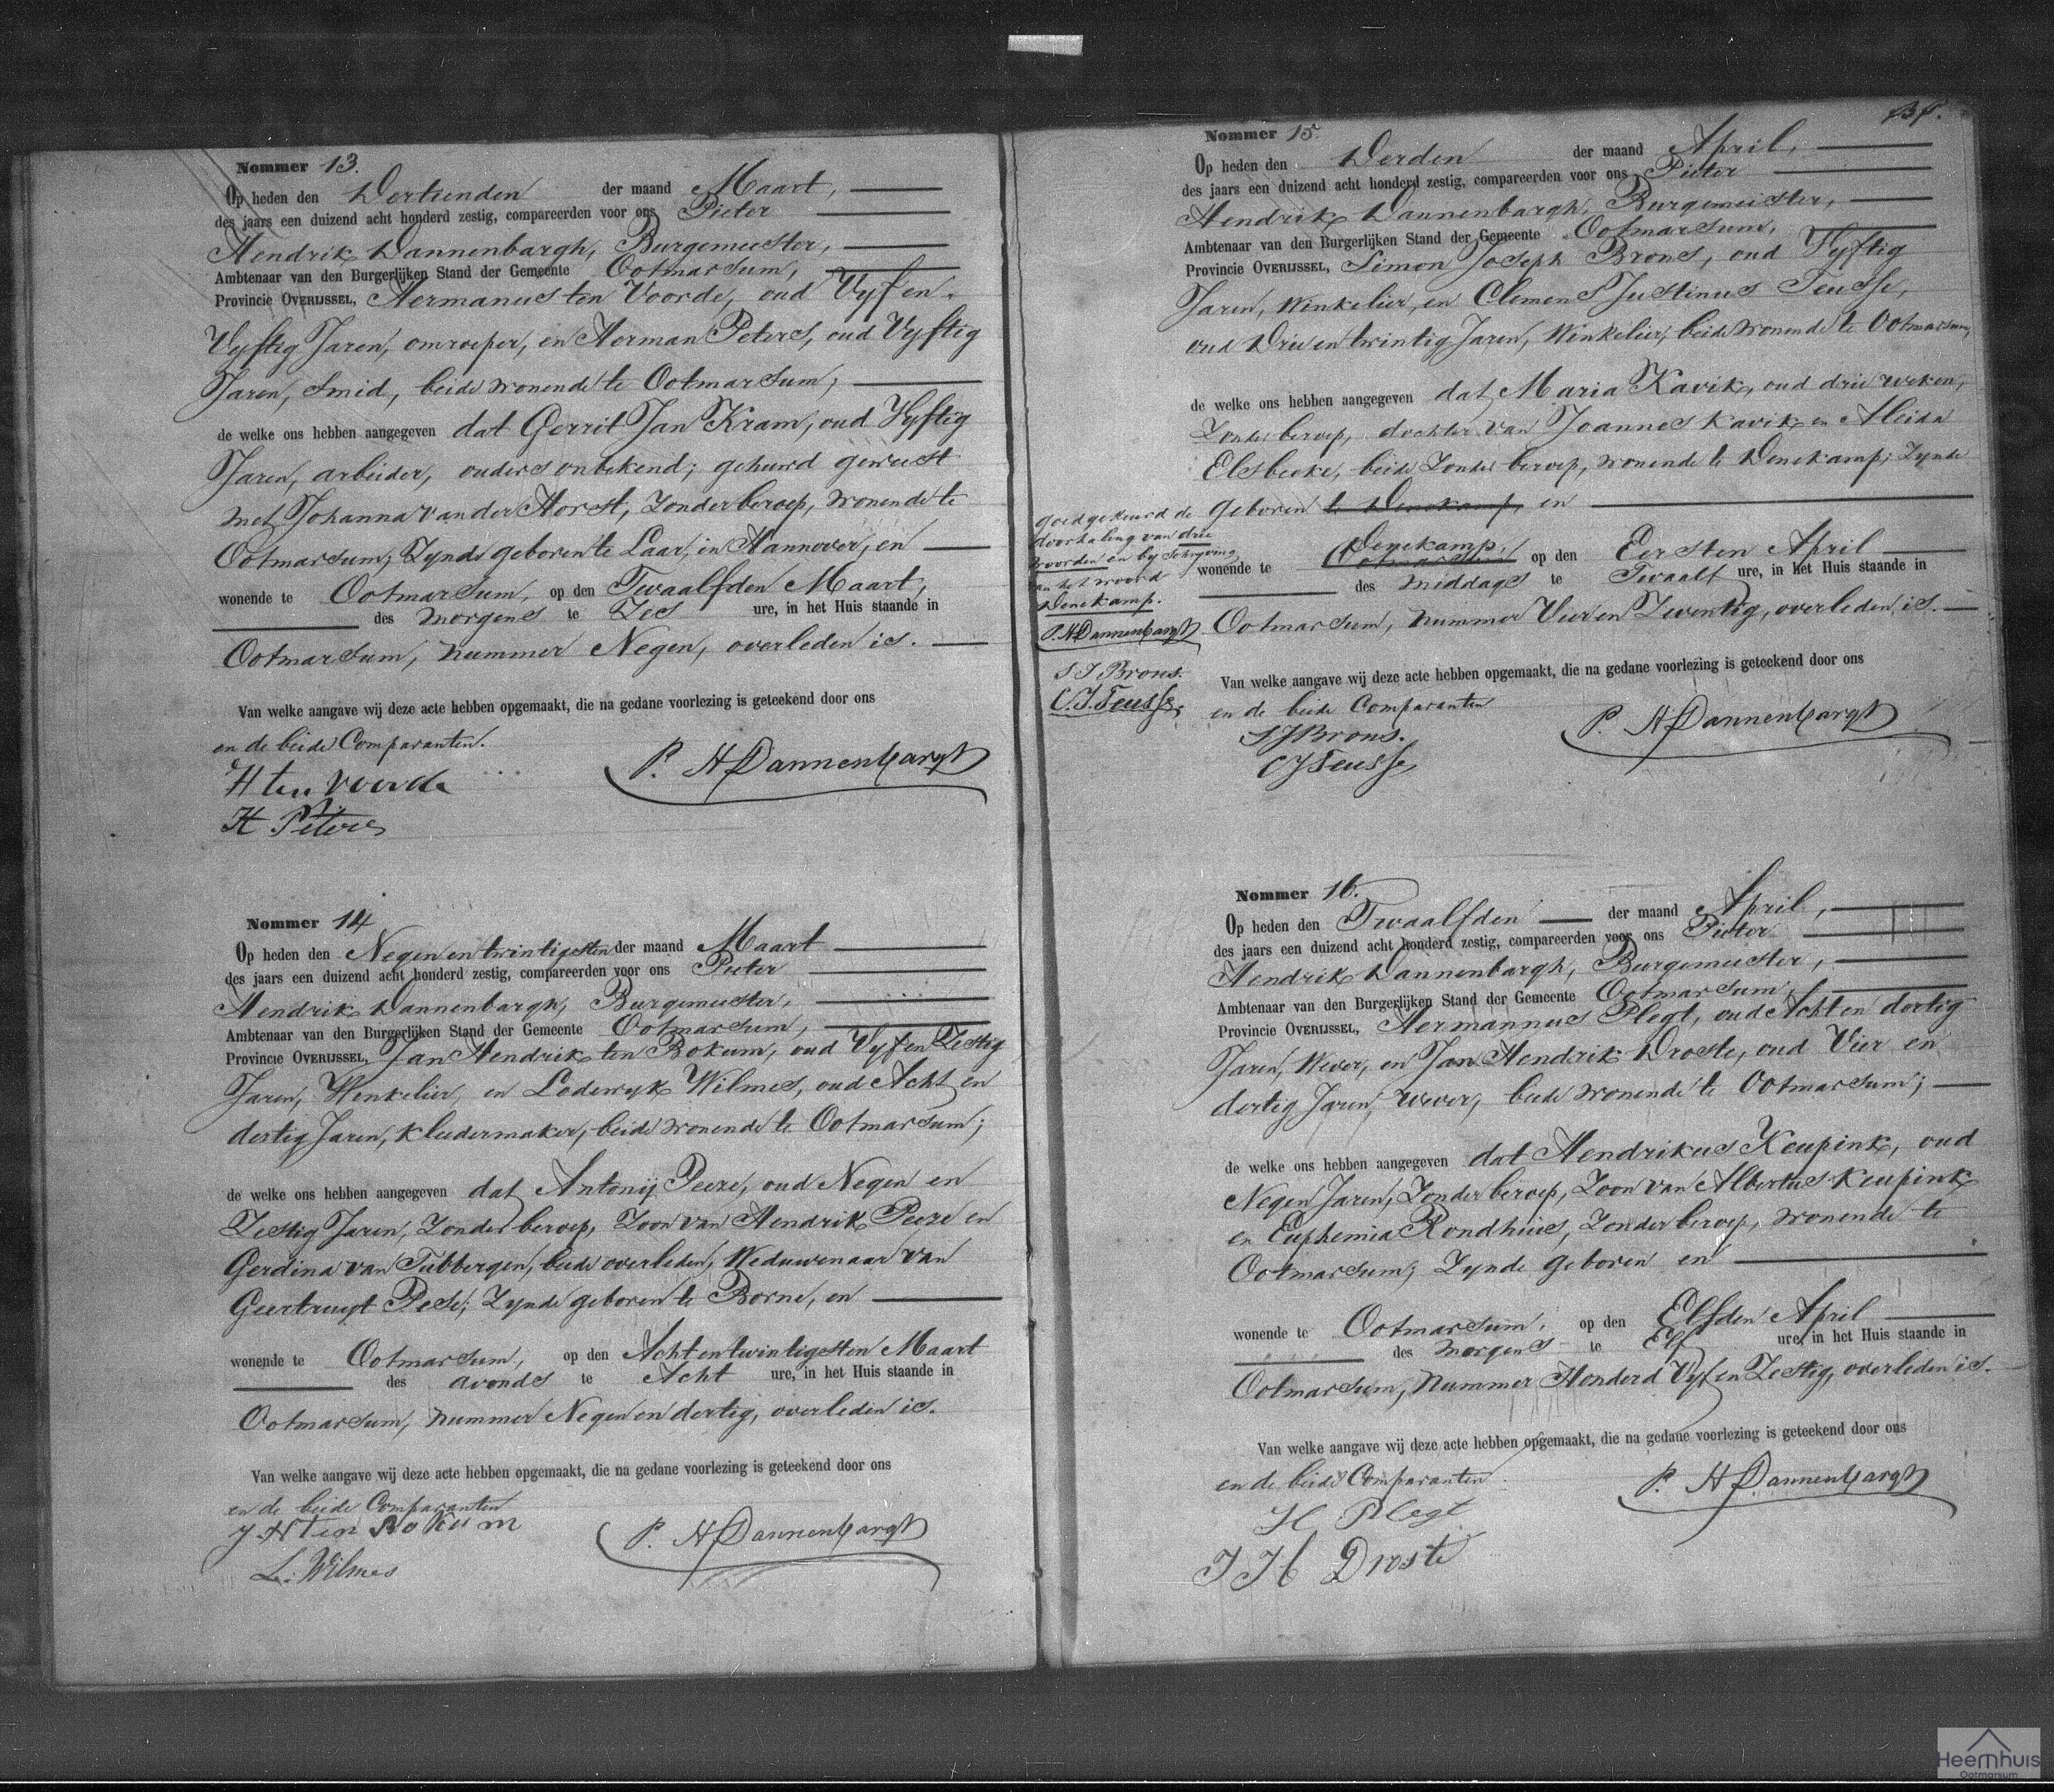 Nommer 13.
Op heden den Dertienden der maand Maart,
des jaars een duizend acht honderd zestig, compareerden voor ons Pieter
Hendrik Dannenbargh, Burgemeester,
Ambtenaar van den Burgerlijken Stand der Gemeente Ootmarsum,
Provincie OVERIJSSEL, Hermanus ten Voorde, oud Vyf en
Vyftig Jaren, omroeper, en Herman Peters, oud Vyftig
Jaren, Smid, beide wonende te Ootmarsum;
de welke ons hebben aangegeven dat Gerrit Jan Kram, oud Vyftig
Jaren, arbeider, ouders onbekend; gehuwd geweest
met Johanna van der Horst, Zonder beroep, wonende te
Ootmarsum; Zynde geboren te Laar, in Hannover, en
wonende te Ootmarsum, op den Twaalfden Maart,
des morgens te Zes ure, in het Huis staande in
Ootmarsum, nummer Negen, overleden is.
Van welke aangave wij deze acte hebben opgemaakt, die na gedane voorlezing is geteekend door ons
en de beide Comparanten.
H ten voorde
P. H Dannenbargh
H Peters
Nommer 14
Op heden den Negen en twintigsten der maand Maart
des jaars een duizend acht honderd zestig, compareerden voor ons Pieter
Hendrik Dannenbargh, Burgemeester,
Ambtenaar van den Burgerlijken Stand der Gemeente Ootmarsum,
Provincie OVERIJSSEL, Jan Hendrik ten Bokum, oud Vyf en Zestig
Jaren, Winkelier, en Lodewyk Wilmes, oud Acht en
dertig Jaren, kleedermaker, beide wonende te Ootmarsum;
de welke ons hebben aangegeven dat Antonij Peeze, oud Negen en
Zestig Jaren, Zonder beroep, Zoon van Hendrik Peeze en
Gerdina van Tubbergen, beide overleden, Weduwenaar van
Geertruyt Pese; Zynde geboren te Borne, en
wonende te Ootmarsum, op den Acht en twintigsten Maart
des avonds te Acht ure, in het Huis staande in
Ootmarsum, nummer Negen en dertig, overleden is.
Van welke aangave wij deze acte hebben opgemaakt, die na gedane voorlezing is geteekend door ons
en de beide Comparanten
J H ten Bokum
P. H Dannenbargh
L. Wilmes
Nommer 15.
Op heden den Derden der maand April,
des jaars een duizend acht honderd zestig, compareerden voor ons Pieter
Hendrik Dannenbargh, Burgemeister,
Ambtenaar van den Burgerlijken Stand der Gemeente Ootmarsum,
Provincie OVERIJSSEL, Simon Joseph Brons, oud Vyftig
Jaren, Winkelier, en Clemens Justinus Teusse,
oud Drie en twintig Jaren, Winkelier, beide wonende te Ootmarsum,
de welke ons hebben aangegeven dat Maria Kavik, oud drie weken,
Zonder beroep, dochter van Joannes Kavik en Aleida
Elsbeeke, beide Zonder beroep, wonende te Denekamp; Zynde
geboren te Denekamp, en
wonende te Ootmarsum Denekamp, op den Eersten April
des middags te Twaalf ure, in het Huis staande in
Ootmarsum, nummer Vier en Twentig, overleden is.
goedgekeurd de
doorhaling van drie
woorden en by schryving
van het woord
Denekamp.
P. H Dannenbargh
S J Brons.
C. J. Teusse,
Van welke aangave wij deze acte hebben opgemaakt, die na gedane voorlezing is geteekend door ons
en de beide Comparanten
S J Brons.
P. H Dannenbargh
C J Teusse
Nommer 16.
Op heden den Twaalfden der maand April,
des jaars een duizend acht honderd zestig, compareerden voor ons Pieter
Hendrik Dannenbargh, Burgemeester,
Ambtenaar van den Burgerlijken Stand der Gemeente Ootmarsum,
Provincie OVERIJSSEL, Hermannus Plegt, oud Acht en dertig
Jaren, Wever, en Jan Hendrik Droste, oud Vier en
dertig Jaren, wever, beide wonende te Ootmarsum;
de welke ons hebben aangegeven dat Hendrikus Keupink, oud
Negen Jaren, Zonder beroep, Zoon van Albertus Keupink
en Euphemia Rondhuis, Zonder beroep, wonende te
Ootmarsum; Zynde geboren en
wonende te Ootmarsum, op den Elfden April
des morgens te Elf ure, in het Huis staande in
Ootmarsum, nummer Honderd Vyf en Zestig, overleden is.
Van welke aangave wij deze acte hebben opgemaakt, die na gedane voorlezing is geteekend door ons
en de beide Comparanten
H Plegt
P. H Dannenbargh
J H Droste
Heemhuis
Ootmarsum